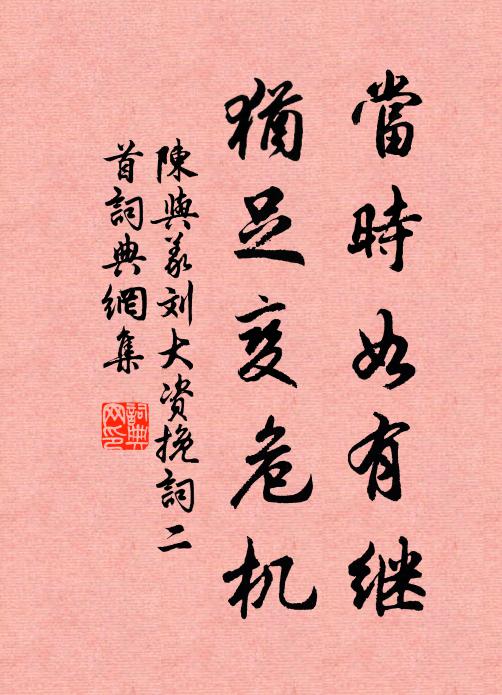 當時如有继
猶足变危机
陳與義刘大资挽詞二
首詞典網集
詞典网印